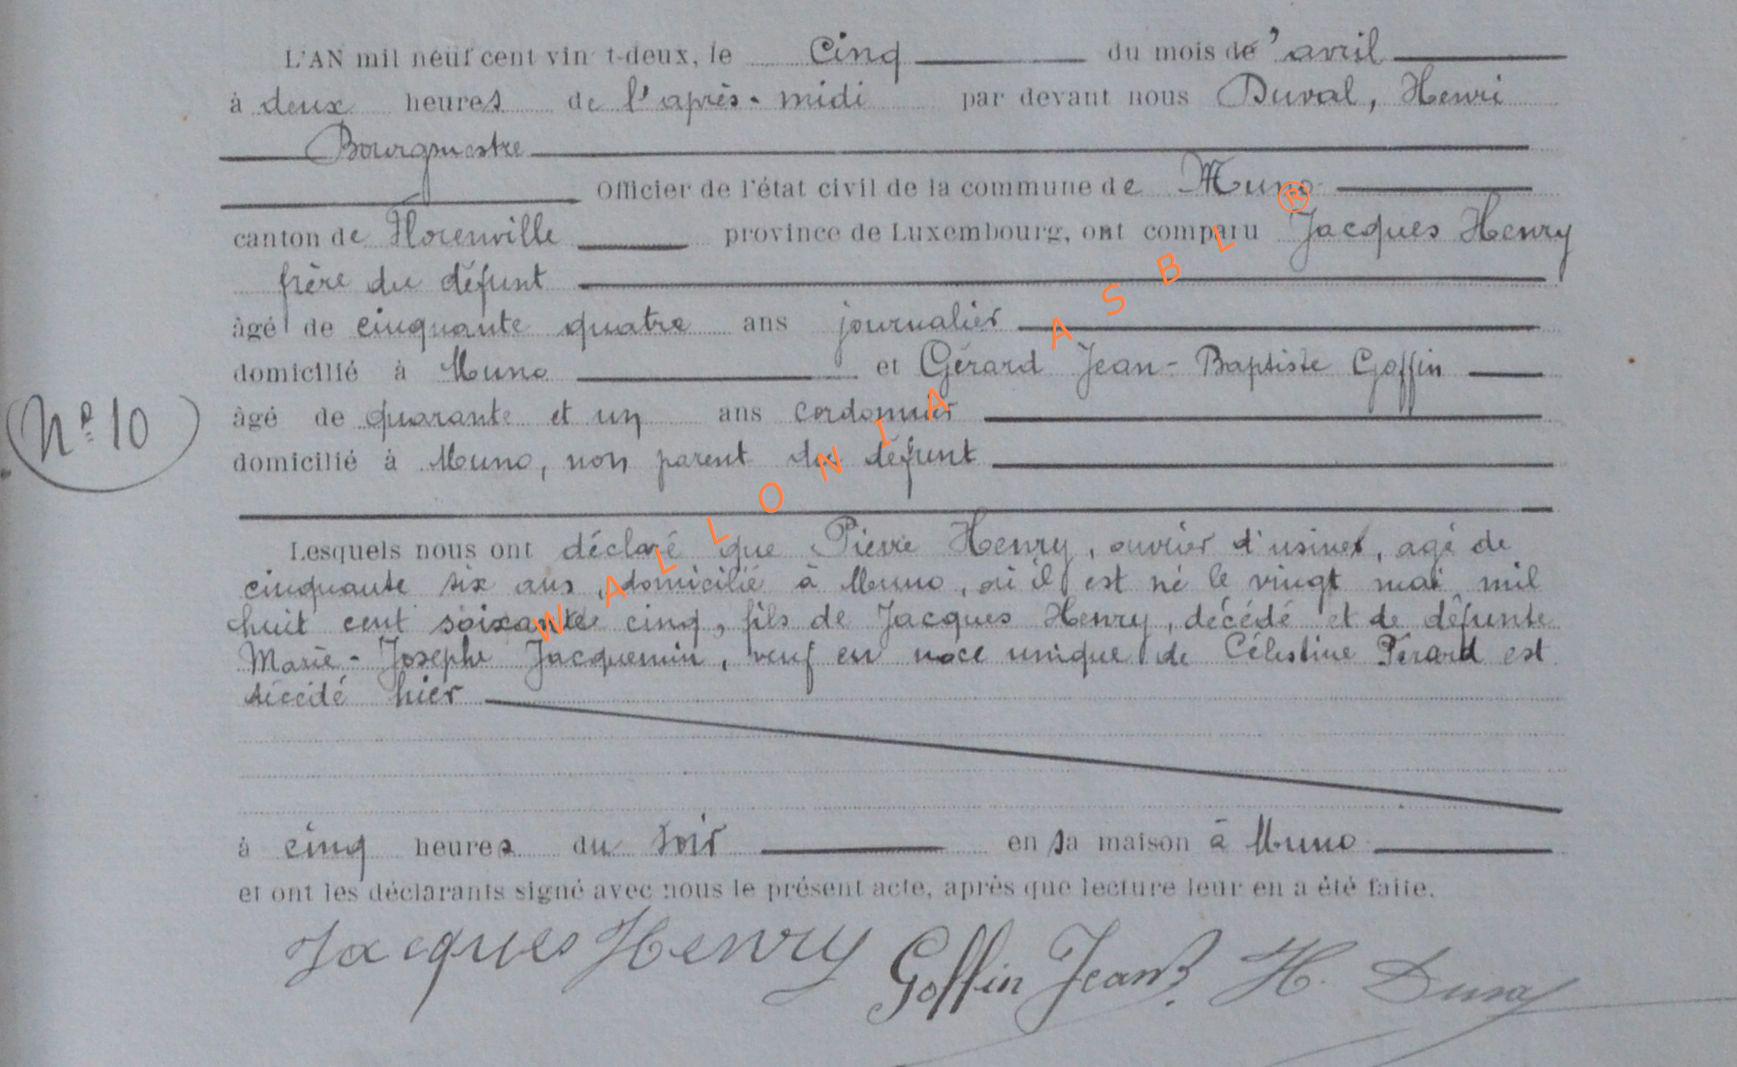 L'AN mil neuf cent vin t-deux, le cinq du mois de 'avril
à deux heures de l'après-midi par devant nous Duval, Henri
Bourgmestre
Officier de l'état civil de la commune de Muno
canton de Florenville province de Luxembourg, ont comparu Jacques Henry
frère du défunt
âgé de cinquante quatre ans journalier
domicilié à Muno et Gérard Jean-Baptiste Goffin
Nº 10
âgé de quarante et un ans cordonnier
domicilié à Muno, non parent du défunt
Lesquels nous ont déclaré que Pierre Henry, ouvrier d'usines, agé de
cinquante six ans, domicilié à Muno, où il est né le vingt mai mil
huit cent soixante cinq, fils de Jacques Henry, décédé et de défunte
Marie-Josephe Jacquemin, veuf en noce unique de Célestine Pérard est
décédé hier
à cinq heures du soir en sa maison à Muno
et ont les déclarants signé avec nous le présent acte, après que lecture leur en a été faite.
Jacques Henry Goffin Jean B. H. Duval
WALLONIA ASBL ®